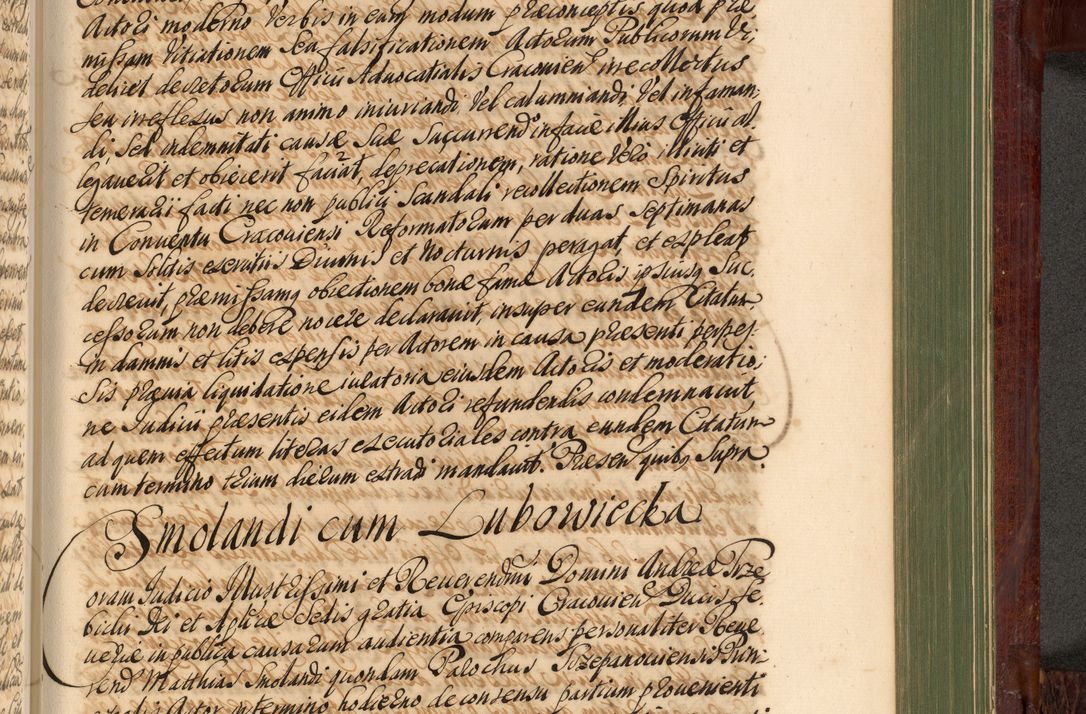 Actori moderno verbis in eum modum præconceptis quod præ
missam vitiationem seu falsificationem Actorum Publicorum vi
delicet decretorum Officii Advocatialis Cracovien irrecollectus
seu irreflexus non animo iniuriandi vel calumniandi vel infaman
di, sed indemnitati causæ suæ succurrendo in facie illius Officii al
legaverit et obiecerit faciat, deprecationem, ratione vero illiciti et
temerarii facti nec non publici scandali recollectionem Spiritus
in Conventu Cracoviensi Reformatorum per duas septimanas
cum solitis exercitiis Diurnis et nocturnis peragat, et expleat
decrevit, præmissamq obiectionem bonæ famæ Actoris ipsiusq suc,
cessorum non debere nocere declaravit, insuper eundem Citatum
in damnis et litis expensis per Actorem in causa præsenti perpes,
sis prævia liquidatione iuratoria eiusdem Actoris et moderatio,
ne Iudicii præsentis eidem Actori refundendis condemnavit
ad quem effectum literas executoriales contra eundem Citatum
cum termino trium dierum extradi mandavit. Præsen quibq supra.
Smolandi cum Lubowiecka
Coram Iudicio Illustrissimi et Reverendmi Domini Andreæ Trze
bicki Dei et Aplicæ Sedis gratia Episcopi Cracovien Ducis Se,
veriæ in publica causarum audientia comparens personaliter Reve
rend Matthias Smolandi quondam Parochus Szczepanoviensis Prin
cipalis Actor in termino hodierno de consensu partium provenienti